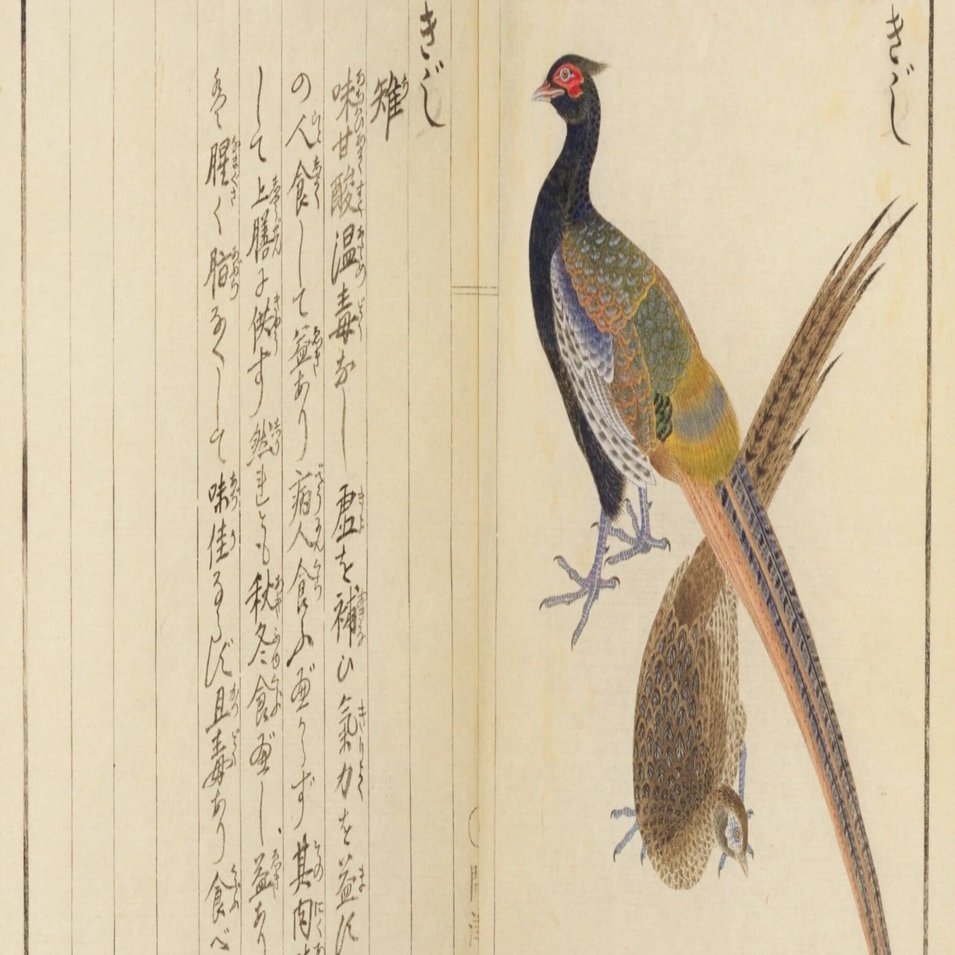 きゞし
きゞし
雉
味甘酸温毒なし 虚を補ひ氣力を益す
の人食して益あり病人食ふべからず其肉
して上膳に供す然れども秋冬食べし、益あり
冬腥く脂なくして味佳ならず且毒あり食べ